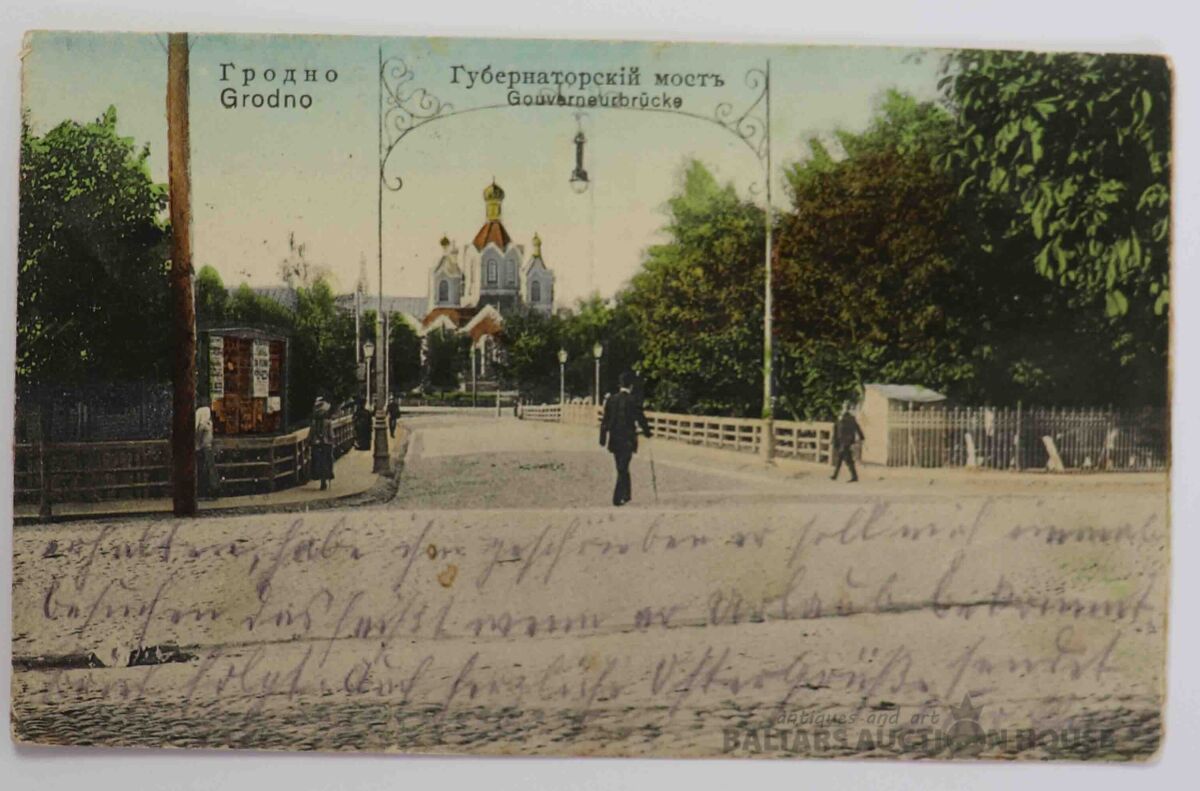 Гродно
Grodno
Губернаторскій мостъ
Gouverneurbrücke
erhalten, habe ihm geschrieben er soll mich einmal
besuchen das heißt wenn er Urlaub bekommt.
Brief folgt. Auch herzliche Ostergrüße sendet
antiques and art
BALTARS AUCTION HOUSE